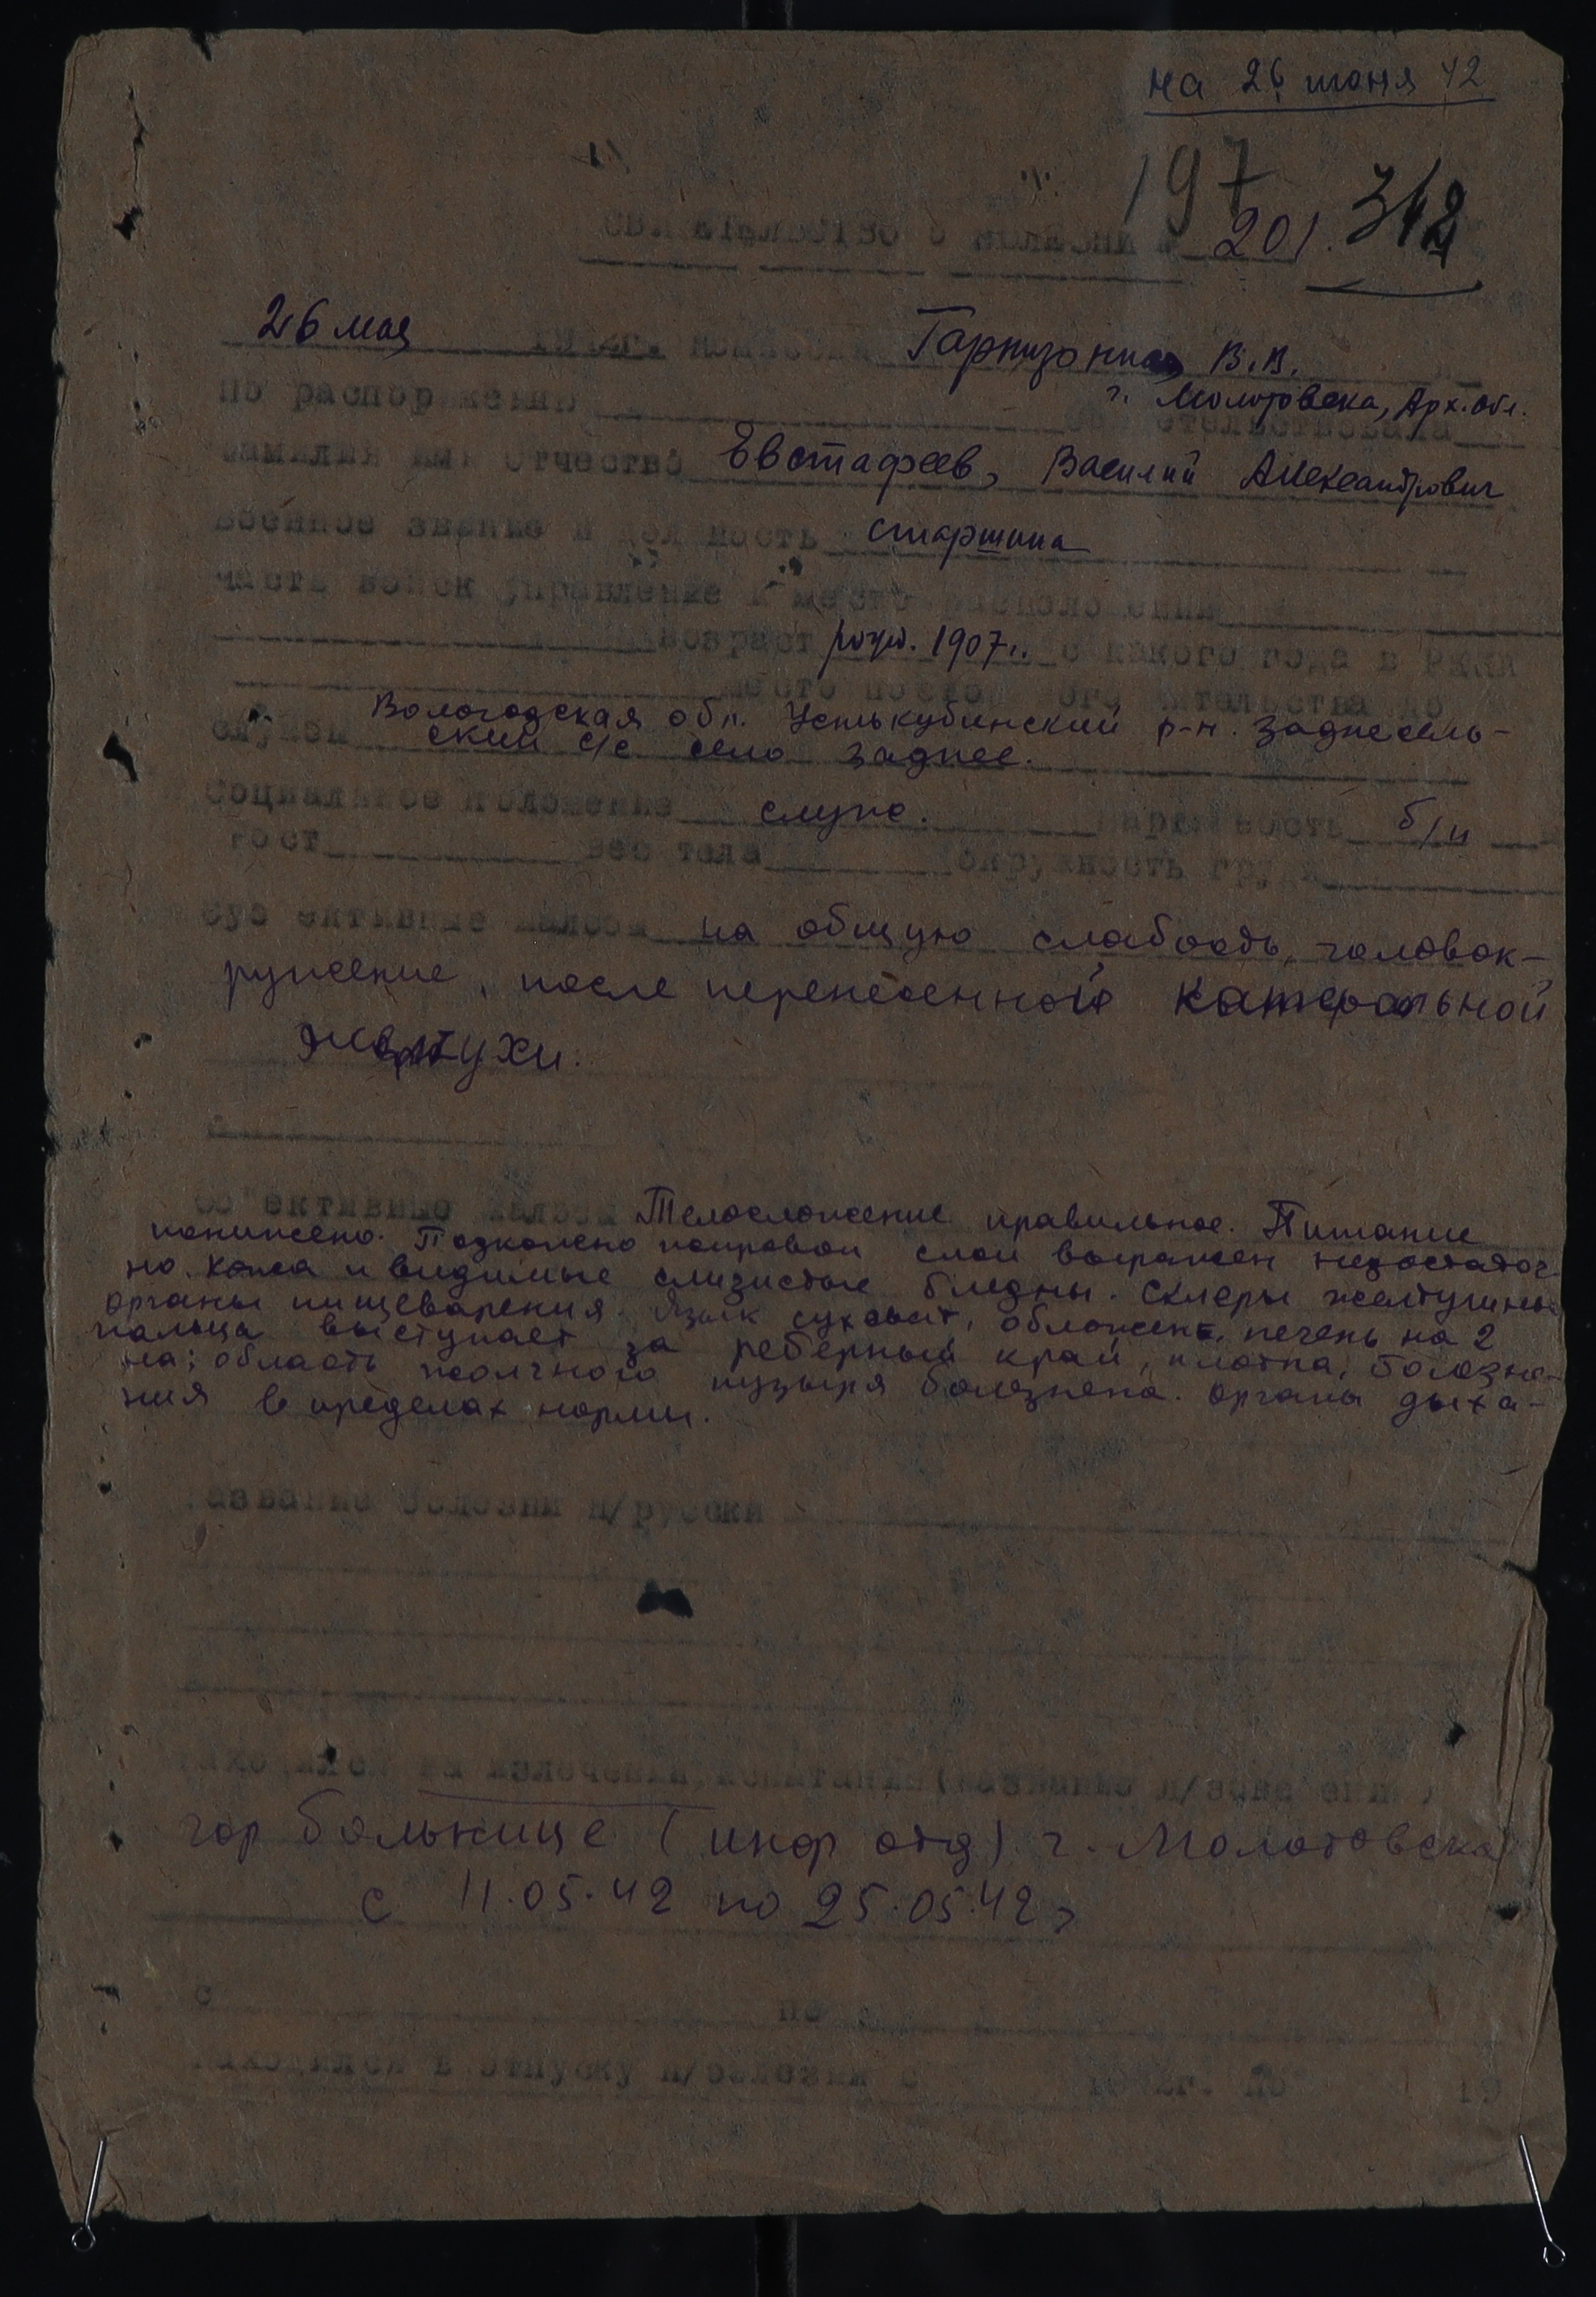 на 26 июня 42
197
СВИДЕТЕЛЬСТВО О БОЛЕЗНИ № 201. 312
26 мая 1942г. комиссия Гарнизонная В.В.
г. Молотовска, Арх. обл.
По распоряжению освидетельствовала
Фамилия имя отчество Евстафеев, Василий Александрович
Военное звание и должность старшина
Часть войск управление и место расположения
возраст рожд. 1907г. с какого года в РККА
место постоянного жительства до
службы Вологодская обл. Устькубинский р-н. Заднесель-
ский с/с село Заднее.
Социальное положение служ. Партийность б/п
Рост вес тела окружность груди
Суб'ективные жалобы на общую слабость, головок-
ружение, после перенесенной катаральной
желтухи.
Об'ективные жалобы Телосложение правильное. Питание
понижено. Подкожно жировой слой выражен недостаточ-
но. Кожа и видимые слизистые бледны. Склеры желтушны
органы пищеварения. Язык суховат, обложен, печень на 2
пальца выступает за реберный край, плотна, болезне-
на; область желчного пузыря болезнена. органы дыха-
ния в пределах нормы.
Название болезни п/русски
Находился на излечении, испытании (название л/заведения)
гор больнице (инф отд) г. Молотовска
с 11.05.42 по 25.05.42г
с по
Находился в отпуску п/болезни с 1942г. по 19